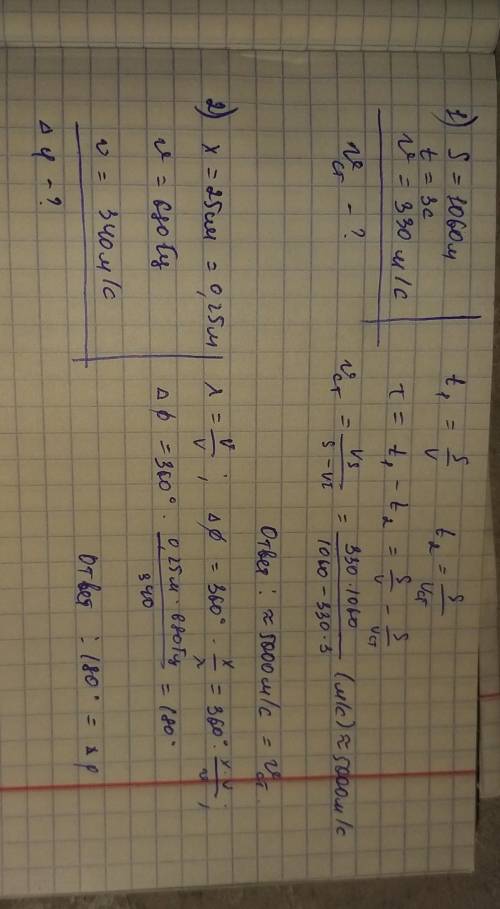 1) S = 1060м
t = 3с
v = 330 м/с
v ст - ?
t₁ = S/V t₂ = S/Vст
τ = t₁ - t₂ = S/V - S/Vст
v ст = VS/S - Vτ = 330·1060/1060 - 330·3 (м/с) ≈ 5000 м/с
Ответ : ≈ 5000 м/с = v ст.
2) x = 25см = 0,25м
ν = 680 Гц
v = 340 м/с
Δφ - ?
λ = v/ν ; Δφ = 360° · x/λ = 360° · x·ν/v ;
Δφ = 360° · 0,25м · 680Гц/340 = 180°
Ответ : 180° =